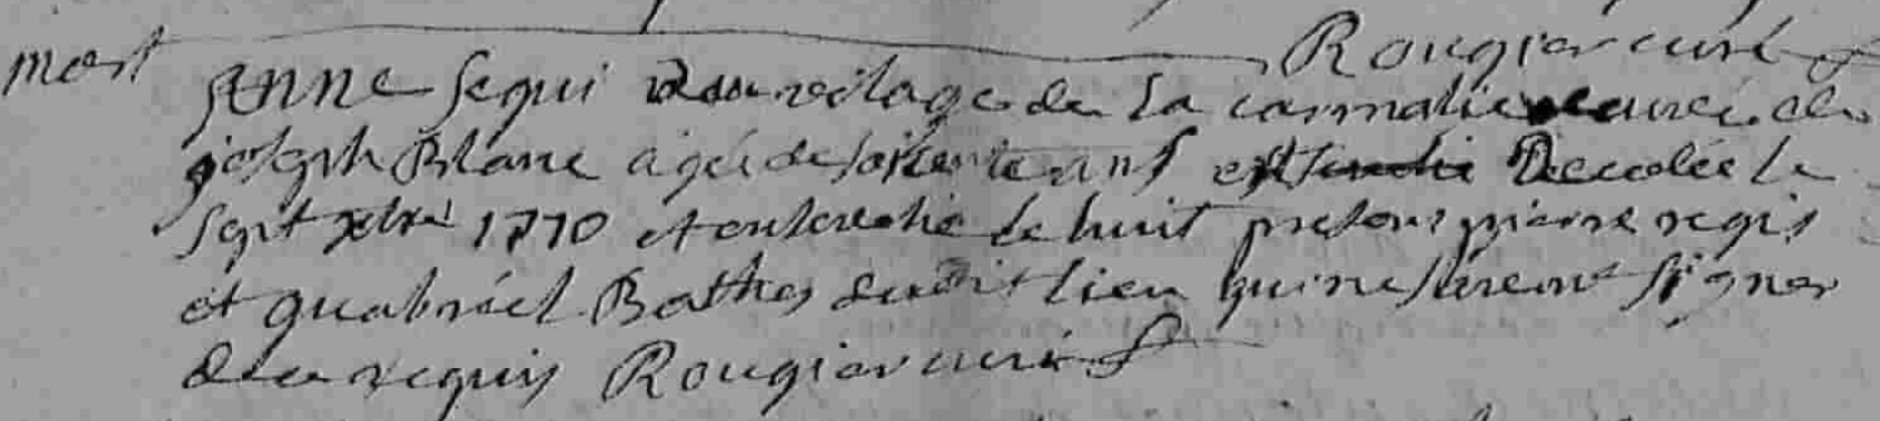 Rougier curé
mort
Anne sequi du vilage de la carmatie veuve de
joseph Blanc agée de soixante ans est Decedée le
sept xbre 1770 et enterrée le huit presens pierre regis
et quabriel Bathes dudit lieu qui ne sürent signer
de requis Rougier curé